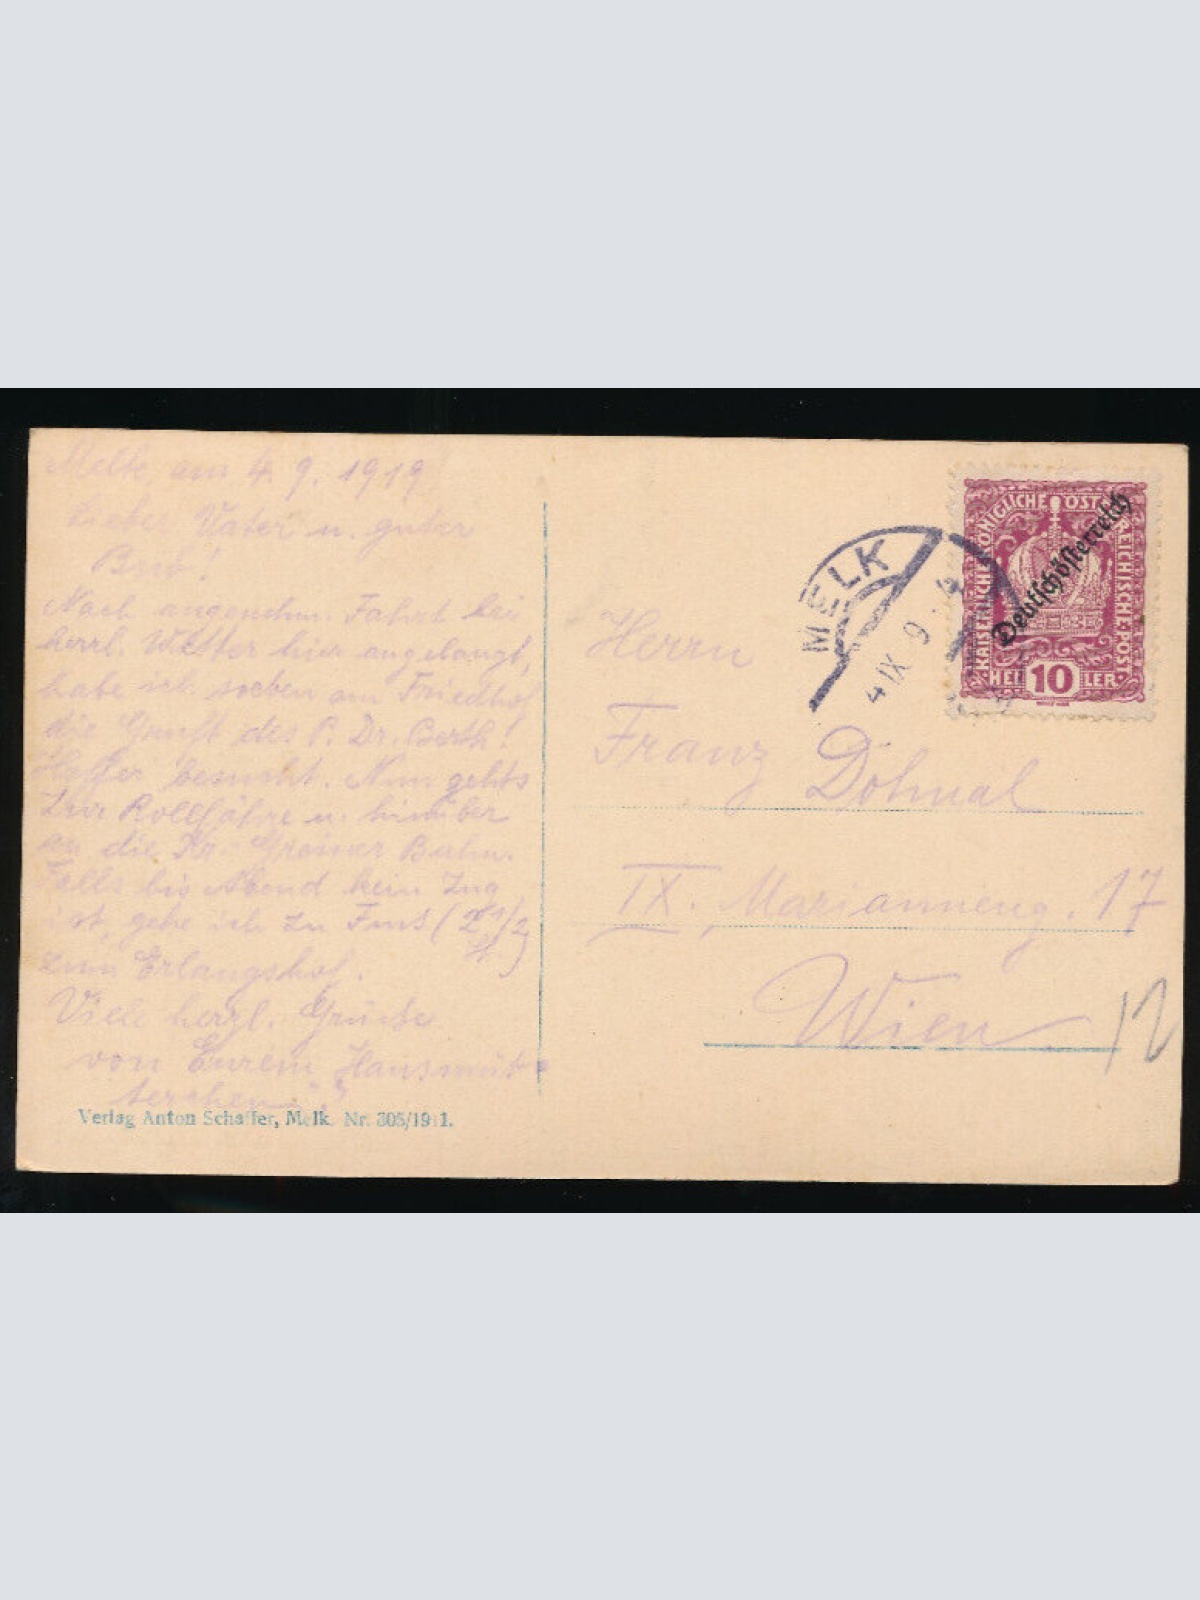 Melk, am 4. 9. 1919
Lieber Vater u. guter
Bub!
Nach angenehm. Fahrt bei
herrl. Wetter hier angelangt,
habe ich soeben am Friedhof
die Gruft des P. Dr. Berth.
besucht. Nun gehts
zur Rollfähre u. hinüber
die Kr. Greiner Bahn.
Falls bis Abend kein Zug
ist, gehe ich zu Fuss (2 1/2
zum Erlangshof.
Viele herzl. Grüsse
von Eurem Hausmüt-
terchen
Verlag Anton Schaffer, Melk. Nr. 305/1911.
MELK
4 IX 9
KAISERLICHE KÖNIGLICHE ÖSTERREICHISCHE POST
Deutschösterreich
HELLER
10
Herrn
Franz Dohnal
IX. Marianneng. 17
Wien
12